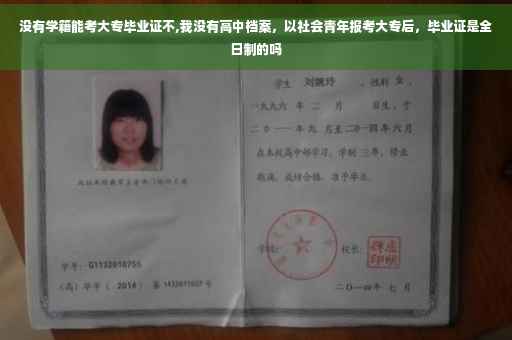 没有学籍能考大专毕业证不,我没有高中档案，以社会青年报考大专后，毕业证是全
日制的吗
学生 刘婉玲 ，性别 女 ，
一九九六 年 二 月 日生，于
二〇一一年 九 月至二〇一四年 六 月
在本校高中部学习，学制 三年，修业
期满，成绩合格，准予毕业。
学校： 校长：
学号：G1132010755
（高）毕字（ 2014 ）第 1432011027 号
二〇一四年 七 月